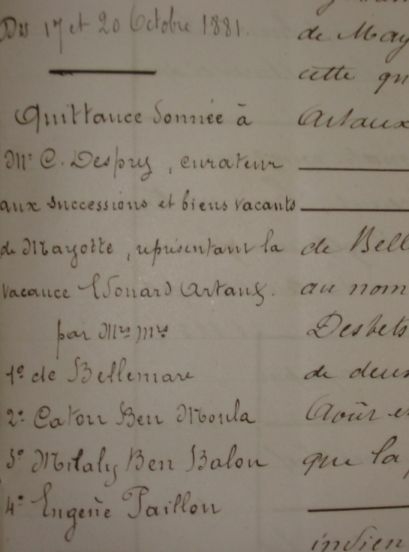 Des 17 et 20 Octobre 1881.
Quittance donnée à
Mr C. Desprez, curateur
aux successions et biens vacants
de Mayotte, représentant la
vacance Edouard Artaux.
par Mrs Mrs
1º de Bellemare
2º Caton Ben Moula
3º Mlaly Ben Balou
4º Eugène Paillou
de May
cette qu
Artaux
de Bell
au nom
Desbets
de deux
Août e
que la
indien